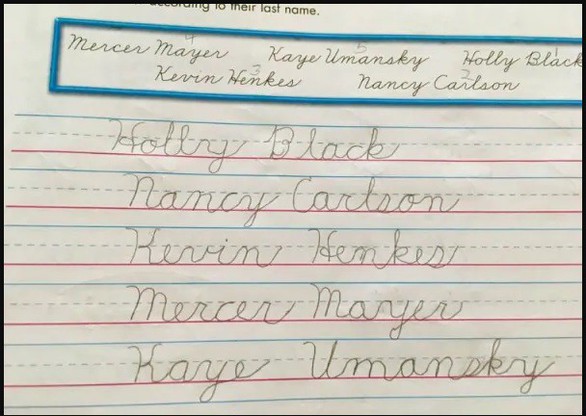 according to their last name.
Mercer Mayer Kaye Umansky Holly Black
4 5 1
Kevin Henkes Nancy Carlson
3 2
Holly Black
Nancy Carlson
Kevin Henkes
Mercer Mayer
Kaye Umansky